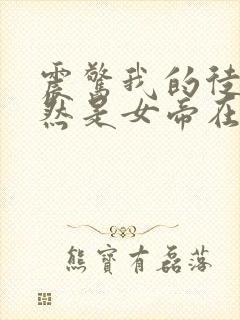 震驚我的徒
然是女帝在
熊寶有磊落